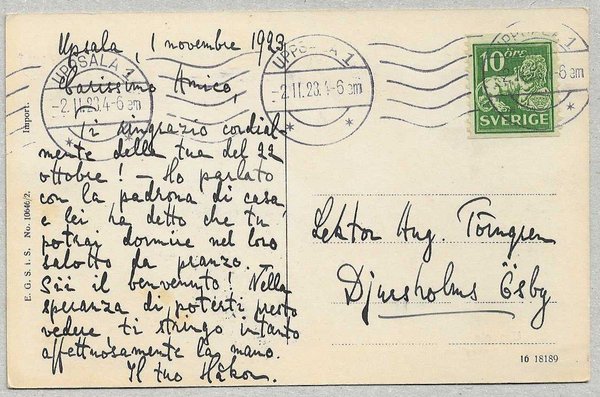 Upsala, 1 novembre 1923
Carissimo Amico,
Ti ringrazio cordial-
mente della tua del 22
ottobre! – Ho parlato
con la padrona di casa
e lei ha detto che tu
potrai dormire nel loro
salotto da pranzo.
Sii il benvenuto! Nella
speranza di poterti presto
vedere, ti stringo intanto
affettuosamente la mano.
Il tuo Håkon.
UPPSALA 1
-2.11.23.4-6 em
UPPSALA 1
-2.11.23.4-6 em
1
-6 em
10 ÖRE
SVERIGE
Lektor Aug. Törngren
Djursholms Ösby
E. G. S. i. S. No. 10646/2. Import.
16 18189